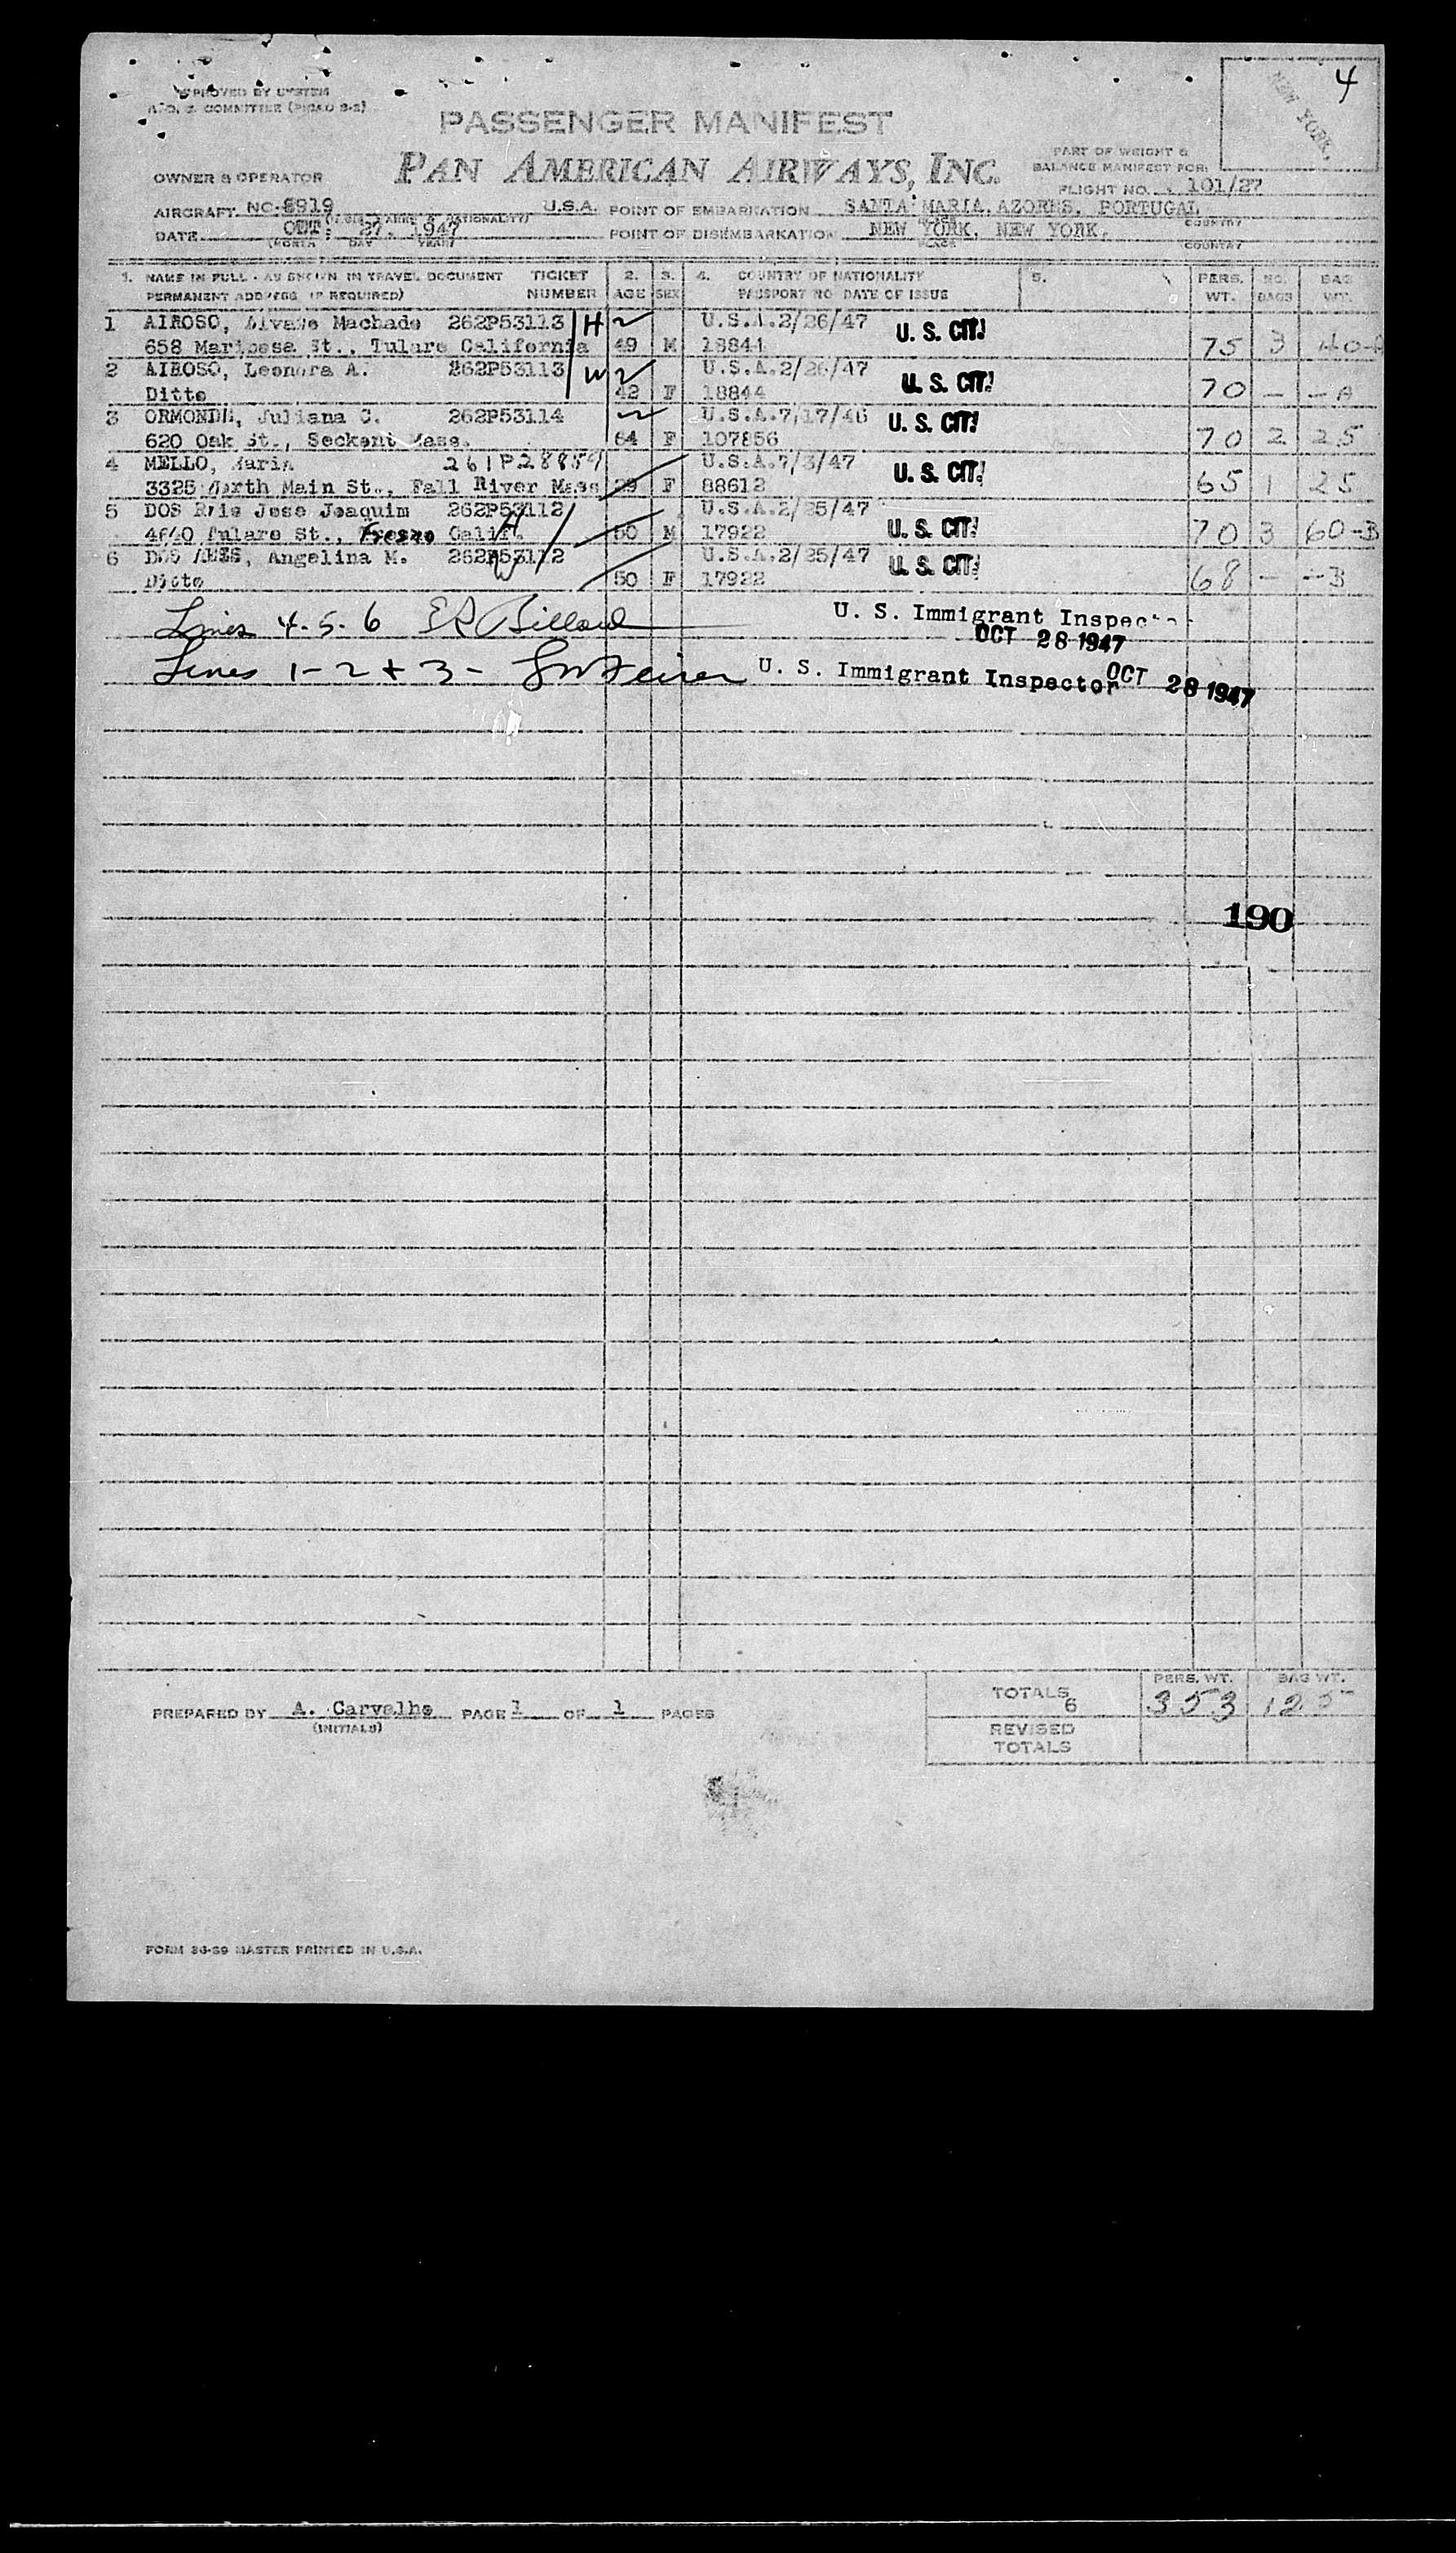 APPROVED BY SYSTEM
COMMITTEE
4
NEW YORK,
PASSENGER MANIFEST
PAN AMERICAN AIRWAYS, INC.
OWNER & OPERATOR
PART OF WEIGHT &
BALANCE MANIFEST FOR:
FLIGHT NO. 101/27
AIRCRAFT NC-8919 U.S.A. POINT OF EMBARKATION SANTA MARIA, AZORES, PORTUGAL
PLACE COUNTRY
DATE OCT. 27, 1947 POINT OF DISEMBARKATION NEW YORK, NEW YORK,
(MONTH DAY YEAR) PLACE COUNTRY
1. NAME IN FULL - AS SHOWN IN TRAVEL DOCUMENT TICKET 2. 3. 4. COUNTRY OF NATIONALITY 5. PERS. NO. BAG
PERMANENT ADDRESS (IF REQUIRED) NUMBER AGE SEX PASSPORT NO DATE OF ISSUE WT. BAGS WT.
1 AIROSO, Machado 262P53113 H U.S.A. 2/26/47 U. S. CIT.
658 Mariposa St., Tulare California 49 M 18844 75 3 40-A
2 AIROSO, Leonora A. 262P53113 W U.S.A. 2/26/47 U. S. CIT.
Ditto 42 F 18844 70 — — A
3 ORMONDE, Juliana C. 262P53114 U.S.A. 7/17/46 U. S. CIT.
620 Oak St., Seekont Mass. 64 F 107856 70 2 25
4 MELLO, Maria 261P28859 U.S.A. 7/3/47 U. S. CIT.
3325 North Main St., Fall River Mass F 88612 65 1 25
5 DOS Reis Jose Joaquim 262P53112 H U.S.A. 2/25/47 U. S. CIT.
4640 Tulare St., Fresno Calif. 50 M 17922 70 3 60-B
6 DOS Angelina M. 262P53112 W U.S.A. 2/25/47 U. S. CIT.
Ditto 50 F 17922 68 — — B
Lines 4-5-6 Billard U. S. Immigrant Inspector
OCT 28 1947
Lines 1-2 + 3- U. S. Immigrant Inspector OCT 28 1947
190
TOTALS 6 PERS. WT. 353 BAG WT. 125
PREPARED BY A. Carvalho PAGE 1 OF 1 PAGES
(INITIALS)
REVISED
TOTALS
FORM 36-59 MASTER PRINTED IN U.S.A.